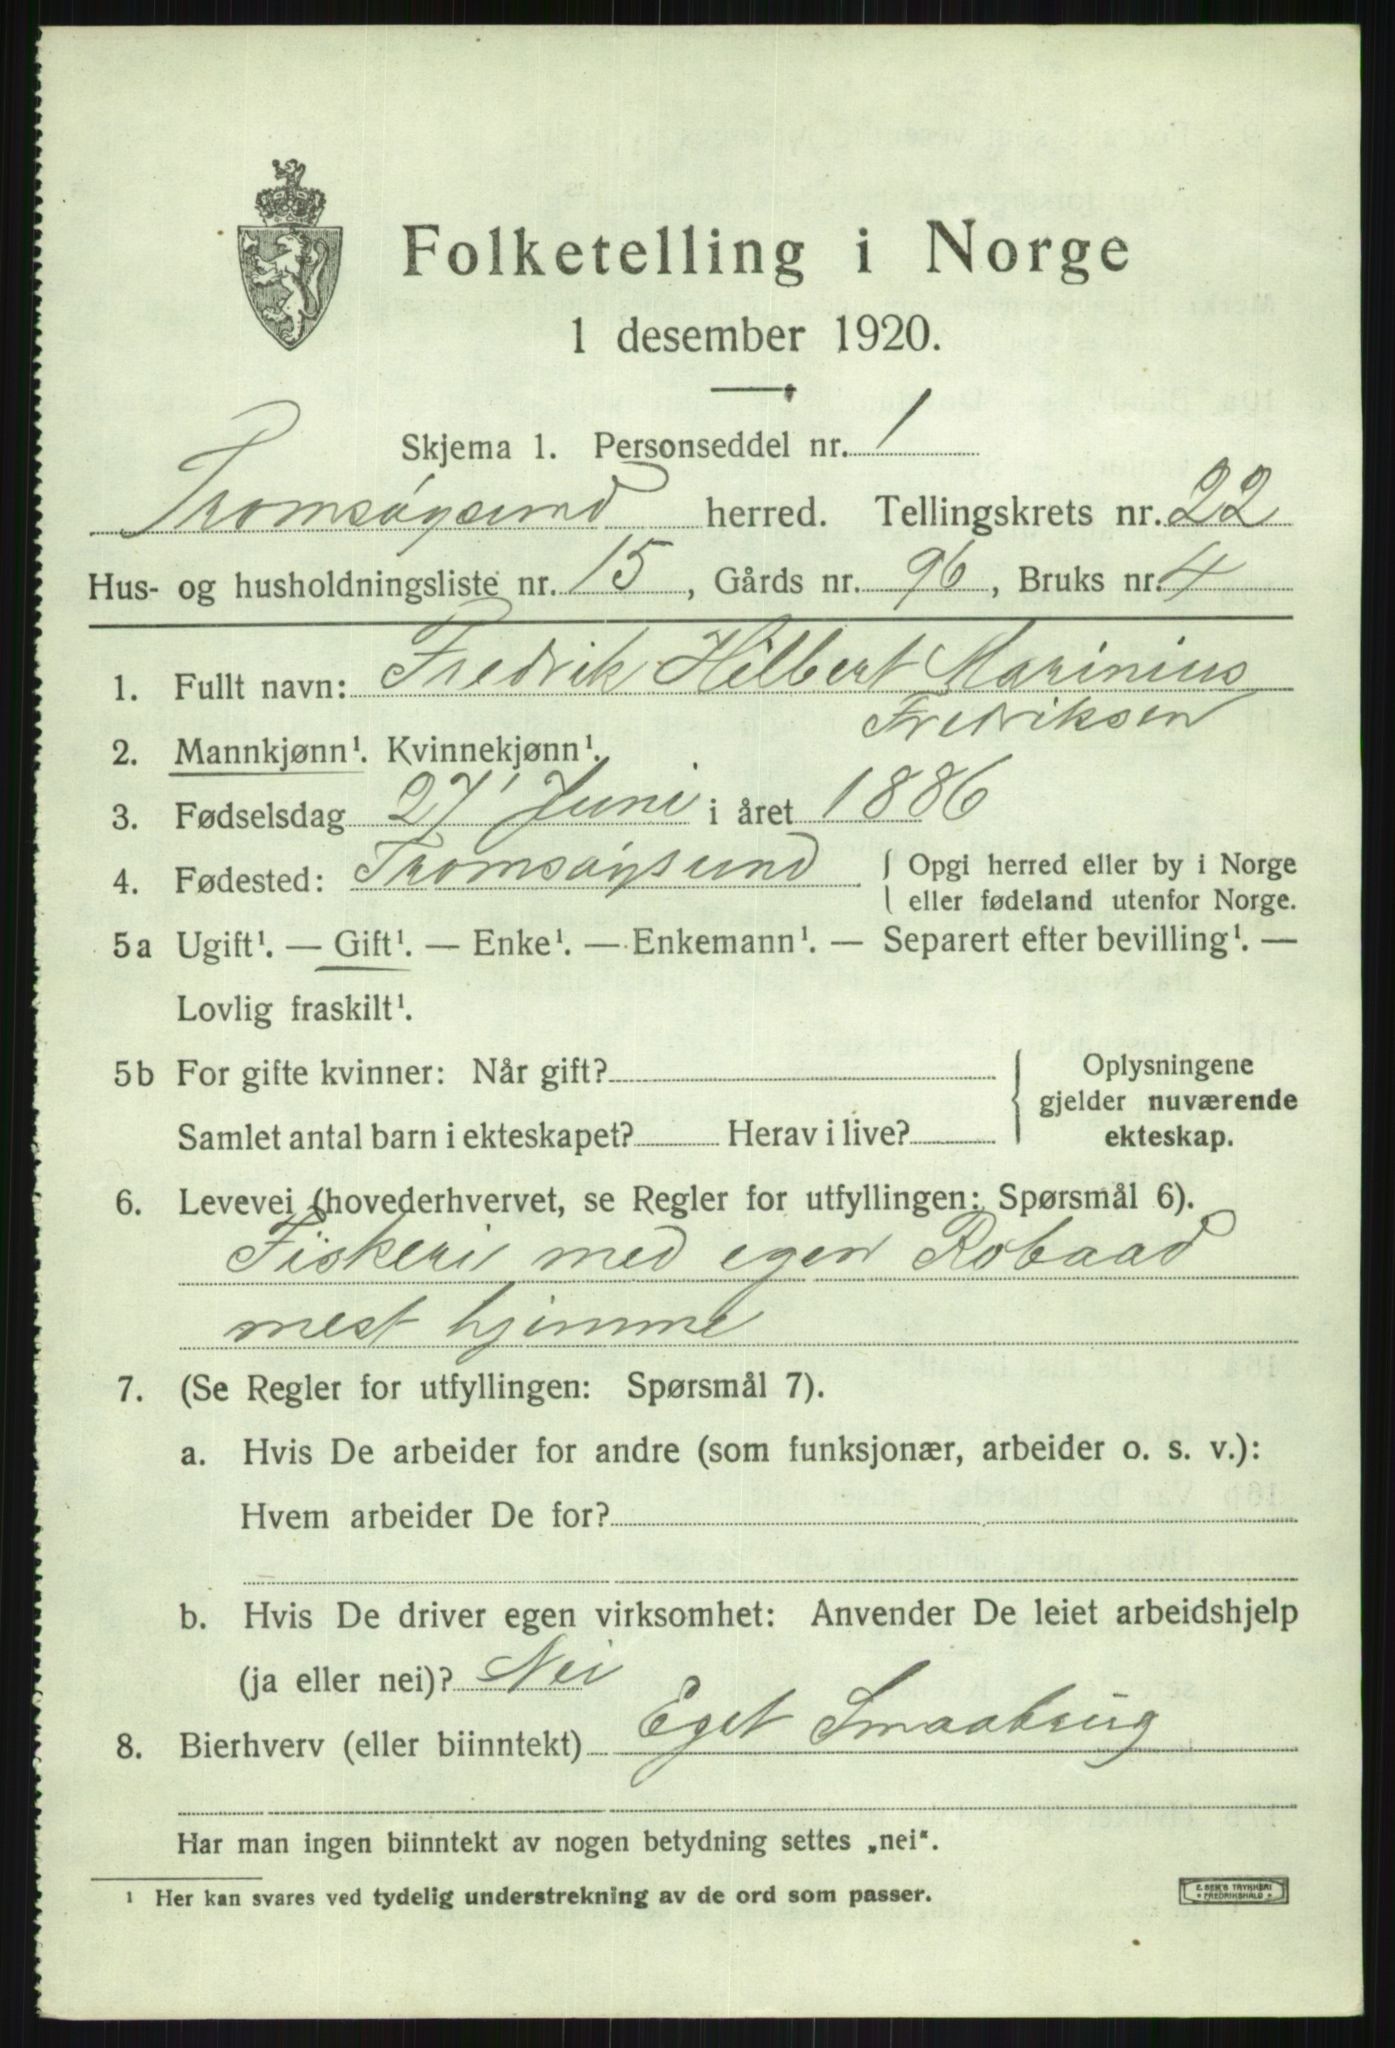 Folketelling i Norge
1 desember 1920.
Skjema 1. Personseddel nr. 1
Tromsøysund herred. Tellingskrets nr. 22
Hus- og husholdningsliste nr. 15, Gårds nr. 96, Bruks nr. 4
1. Fullt navn: Fredrik Hilbert Marinius
Fredriksen
2. Mannkjønn¹. Kvinnekjønn¹.
3. Fødselsdag 27' Juni i året 1886
4. Fødested: Tromsøysund { Opgi herred eller by i Norge
eller fødeland utenfor Norge.
5a Ugift¹. — Gift¹. — Enke¹. — Enkemann¹. — Separert efter bevilling¹. —
Lovlig fraskilt¹.
5b For gifte kvinner: Når gift?
Samlet antal barn i ekteskapet? Herav i live?
{ Oplysningene
gjelder nuværende
ekteskap.
6. Levevei (hovederhvervet, se Regler for utfyllingen: Spørsmål 6).
Fiskeri med egen Robaad
mest hjemme
7. (Se Regler for utfyllingen: Spørsmål 7).
a. Hvis De arbeider for andre (som funksjonær, arbeider o. s. v.):
Hvem arbeider De for?
b. Hvis De driver egen virksomhet: Anvender De leiet arbeidshjelp
(ja eller nei)? Nei
8. Bierhverv (eller biinntekt) Eget Smaabrug
Har man ingen biinntekt av nogen betydning settes „nei“.
¹ Her kan svares ved tydelig understrekning av de ord som passer.
E. SEM'S TRYKKERI
FREDRIKSHALD